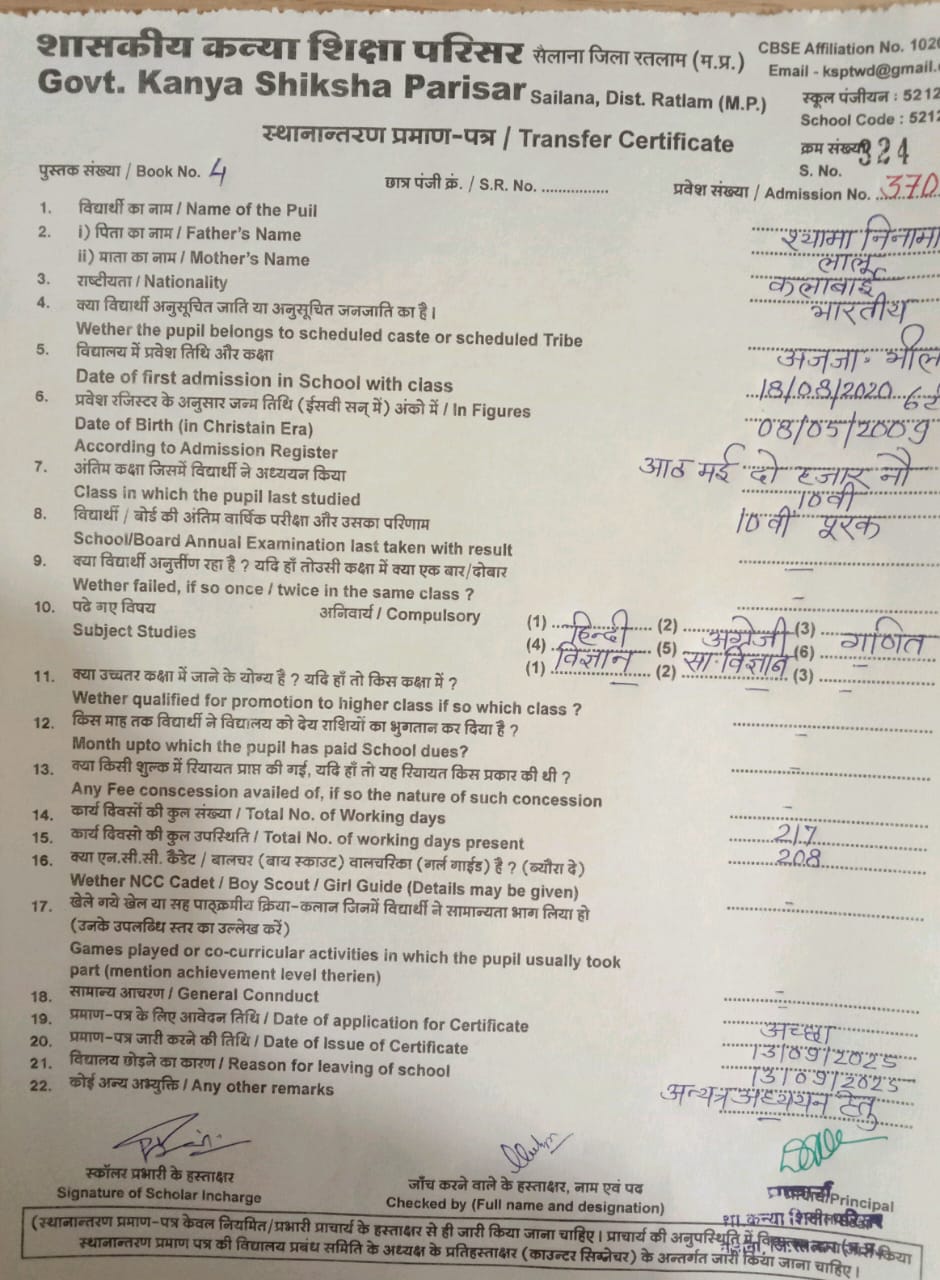 शासकीय कन्या शिक्षा परिसर सैलाना जिला रतलाम (म.प्र.)
CBSE Affiliation No. 102
Govt. Kanya Shiksha Parisar Sailana, Dist. Ratlam (M.P.)
Email - ksptwd@gmail.
स्कूल पंजीयन : 5212
School Code : 5212
स्थानान्तरण प्रमाण-पत्र / Transfer Certificate
क्रम संख्या 324
S. No.
पुस्तक संख्या / Book No. 4 छात्र पंजी क्रं. / S.R. No. ............... प्रवेश संख्या / Admission No. 370
1. विद्यार्थी का नाम / Name of the Puil श्यामा निनामा
2. i) पिता का नाम / Father's Name लालू
ii) माता का नाम / Mother's Name कलाबाई
3. राष्टीयता / Nationality भारतीय
4. क्या विद्यार्थी अनुसूचित जाति या अनुसूचित जनजाति का है।
Wether the pupil belongs to scheduled caste or scheduled Tribe अजजा. भील
5. विद्यालय में प्रवेश तिथि और कक्षा
Date of first admission in School with class 18/08/2020 6टी
6. प्रवेश रजिस्टर के अनुसार जन्म तिथि (ईसवी सन् में) अंको में / In Figures 08/05/2009
Date of Birth (in Christain Era)
According to Admission Register आठ मई दो हजार नौ
7. अंतिम कक्षा जिसमें विद्यार्थी ने अध्ययन किया
Class in which the pupil last studied 10वी
8. विद्यार्थी / बोर्ड की अंतिम वार्षिक परीक्षा और उसका परिणाम
School/Board Annual Examination last taken with result 10वी पूरक
9. क्या विद्यार्थी अनुर्त्तीण रहा है ? यदि हाँ तोउसी कक्षा में क्या एक बार/दोबार
Wether failed, if so once / twice in the same class ? –
10. पढे गए विषय अनिवार्य / Compulsory (1) हिन्दी (2) अग्रेजी (3) गणित
Subject Studies (4) विज्ञान (5) सा. विज्ञान (6) –
(1) – (2) – (3) –
11. क्या उच्चतर कक्षा में जाने के योग्य है ? यदि हाँ तो किस कक्षा में ?
Wether qualified for promotion to higher class if so which class ? –
12. किस माह तक विद्यार्थी ने विद्यालय को देय राशियों का भुगतान कर दिया है ?
Month upto which the pupil has paid School dues? –
13. क्या किसी शुल्क में रियायत प्राप्त की गई, यदि हाँ तो यह रियायत किस प्रकार की थी ?
Any Fee conscession availed of, if so the nature of such concession –
14. कार्य दिवसों की कुल संख्या / Total No. of Working days 217
15. कार्य दिवसो की कुल उपस्थिति / Total No. of working days present 208
16. क्या एन.सी.सी. कैडेट / बालचर (बाय स्काउट) वालचरिका (गर्ल गाईड) है ? (ब्यौरा दे)
Wether NCC Cadet / Boy Scout / Girl Guide (Details may be given) –
17. खेले गये खेल या सह पाठ्क्रमीय क्रिया-कलान जिनमें विद्यार्थी ने सामान्यता भाग लिया हो
(उनके उपलब्धि स्तर का उल्लेख करें)
Games played or co-curricular activities in which the pupil usually took
part (mention achievement level therien) –
18. सामान्य आचरण / General Connduct अच्छा
19. प्रमाण-पत्र के लिए आवेदन तिथि / Date of application for Certificate 13/09/2025
20. प्रमाण-पत्र जारी करने की तिथि / Date of Issue of Certificate 13/09/2025
21. विद्यालय छोड़ने का कारण / Reason for leaving of school अन्यत्र अध्ययन हेतु
22. कोई अन्य अभ्युक्ति / Any other remarks –
स्कॉलर प्रभारी के हस्ताक्षर
Signature of Scholar Incharge
जाँच करने वाले के हस्ताक्षर, नाम एवं पद
Checked by (Full name and designation)
Principal
शा. कन्या शिक्षा परिसर
(स्थानान्तरण प्रमाण-पत्र केवल नियमित/प्रभारी प्राचार्य के हस्ताक्षर से ही जारी किया जाना चाहिए। प्राचार्य की अनुपस्थिति में किया
स्थानान्तरण प्रमाण पत्र की विद्यालय प्रबंध समिति के अध्यक्ष के प्रतिहस्ताक्षर (काउन्टर सिग्नेचर) के अन्तर्गत जारी किया जाना चाहिए।